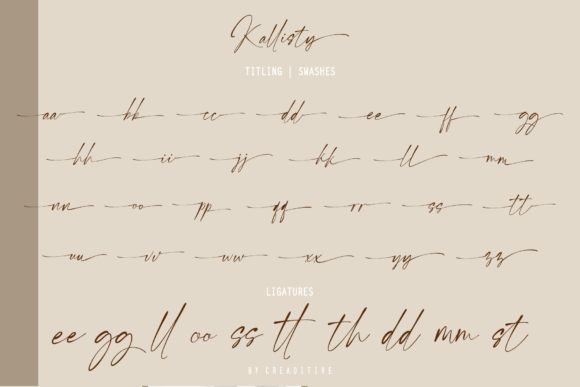 Kallisty
TITLING | SWASHES
aa bb cc dd ee ff gg
hh ii jj kk ll mm
nn oo pp qq rr ss tt
uu vv ww xx yy zz
LIGATURES
ee gg ll oo ss tt th dd mm st
BY CREADITIVE